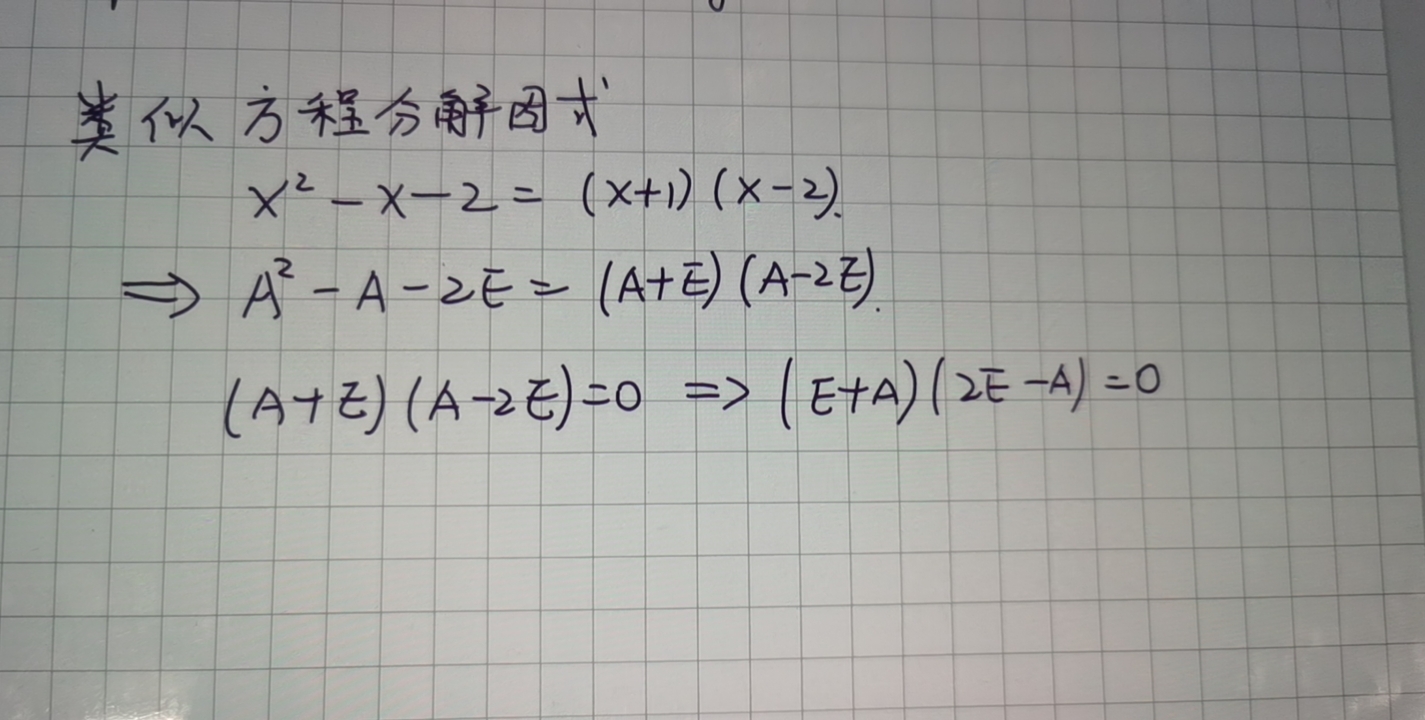 类似方程分解因式
x² - x - 2 = (x+1)(x-2).
⇒ A² - A - 2E = (A+E)(A-2E).
(A+E)(A-2E)=0 => (E+A)(2E-A)=0